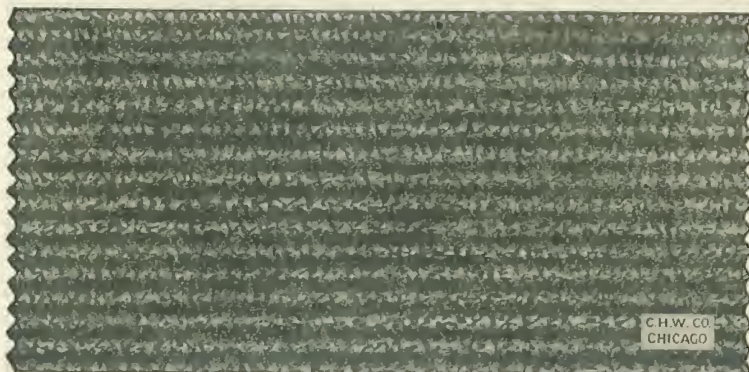 C.H.W. CO.
CHICAGO